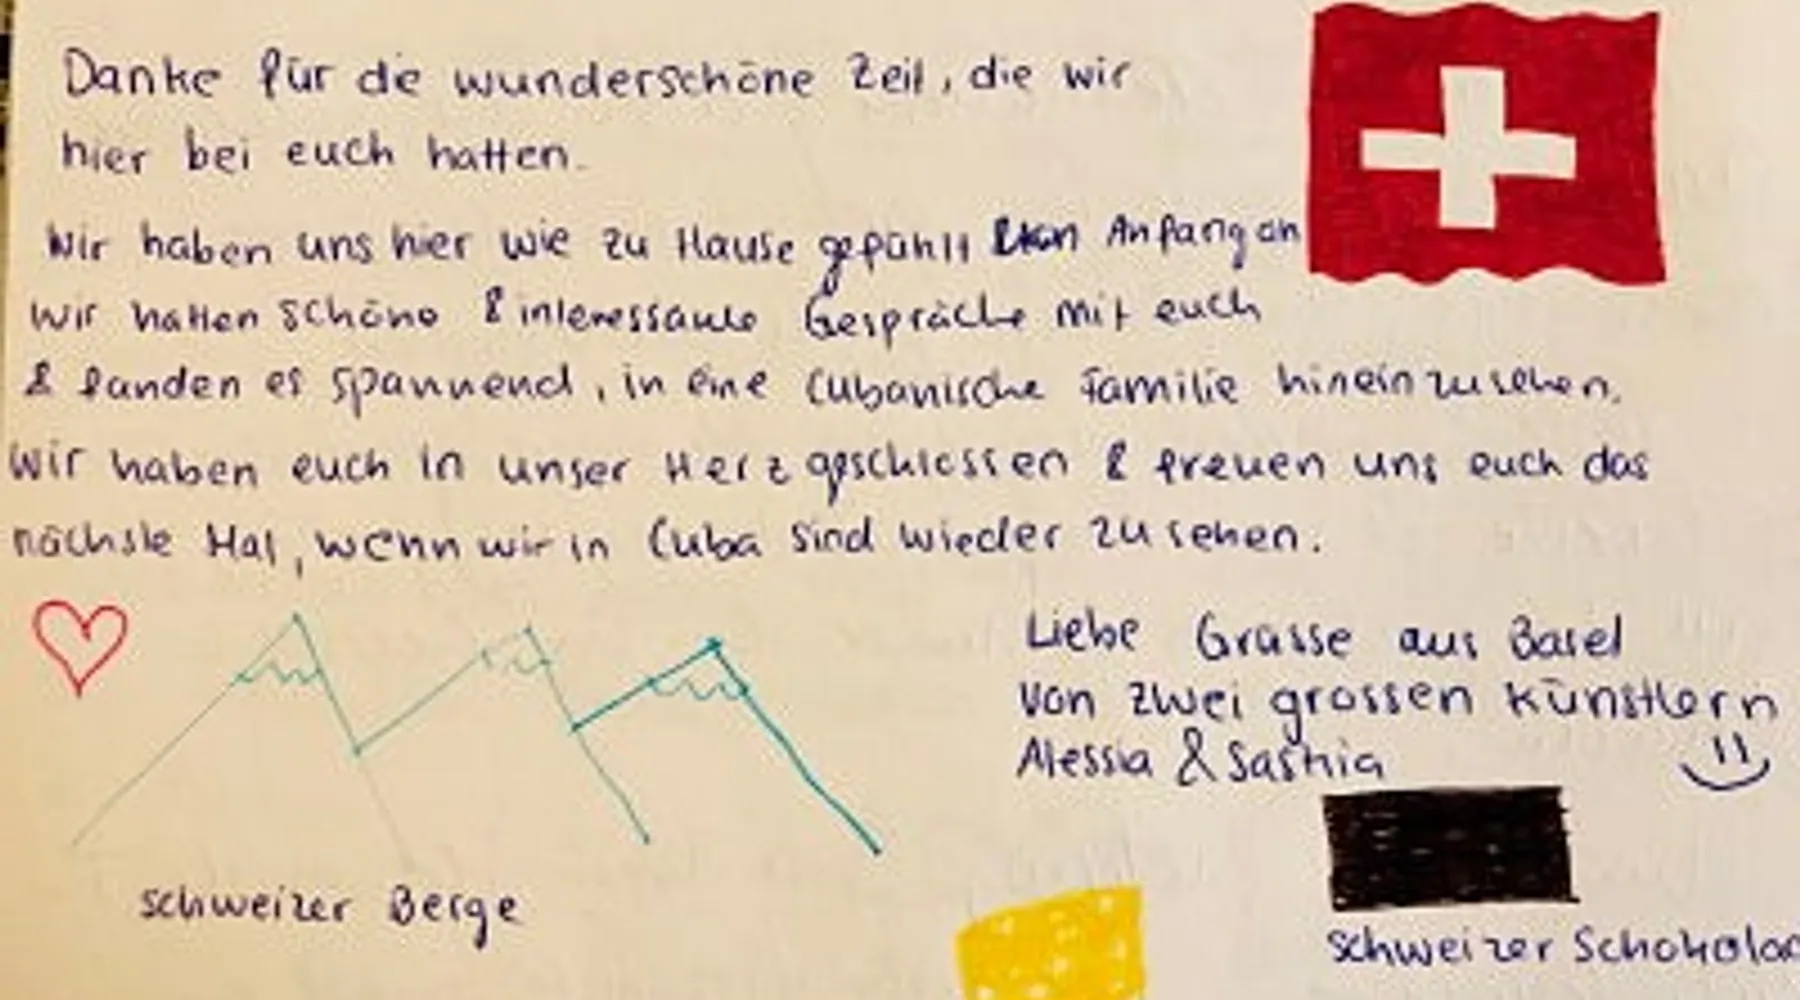 Danke für die wunderschöne Zeit, die wir
hier bei euch hatten.
Wir haben uns hier wie zu Hause gefühlt von Anfang an
Wir hatten schöne & interessante Gespräche mit euch
& fanden es spannend, in eine cubanische Familie hineinzusehen.
Wir haben euch in unser Herz geschlossen & freuen uns euch das
nächste Mal, wenn wir in Cuba sind wieder zu sehen.
Liebe Grüsse aus Basel
von zwei grossen Künstlern
Alessia & Saskia
schweizer Berge
schweizer Schokolad